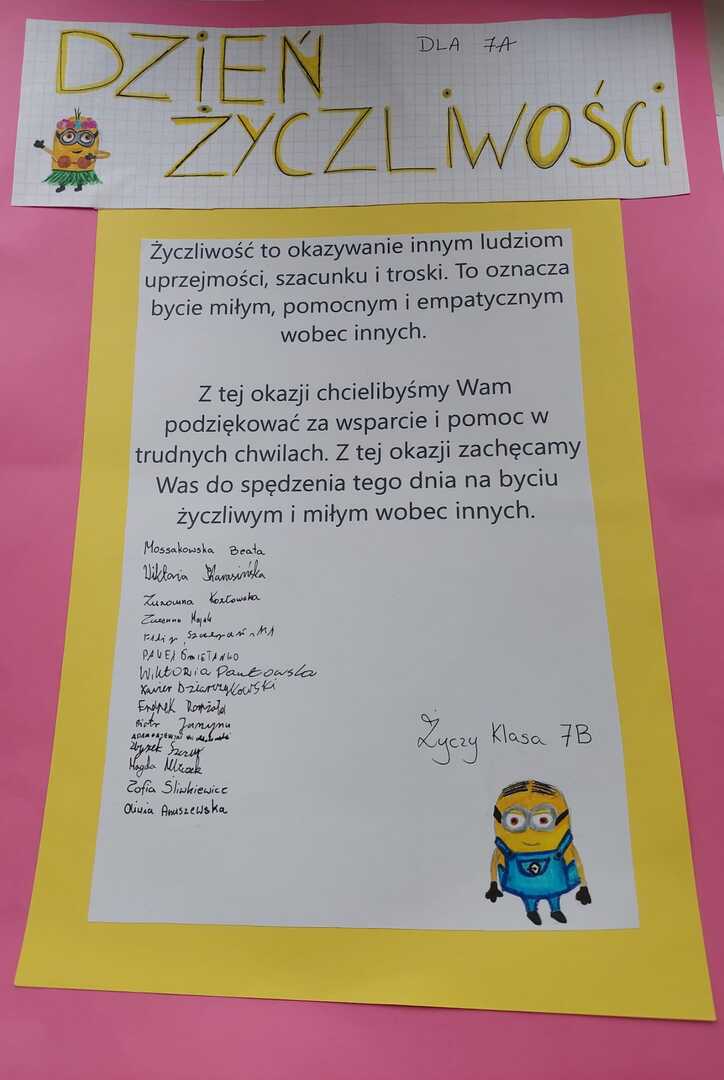 DZIEŃ
DLA 7A
ŻYCZLIWOŚCI
Życzliwość to okazywanie innym ludziom
uprzejmości, szacunku i troski. To oznacza
bycie miłym, pomocnym i empatycznym
wobec innych.
Z tej okazji chcielibyśmy Wam
podziękować za wsparcie i pomoc w
trudnych chwilach. Z tej okazji zachęcamy
Was do spędzenia tego dnia na byciu
życzliwym i miłym wobec innych.
Mossakowska Beata
Wiktoria
Zuzanna Kozłowska
Zuzanna
PAWEŁ
WIKTORIA Pawłowska
Ksawier
Piotr
Magda
Zofia Śliwkiewicz
Oliwia Anuszewska
Życzy Klasa 7B